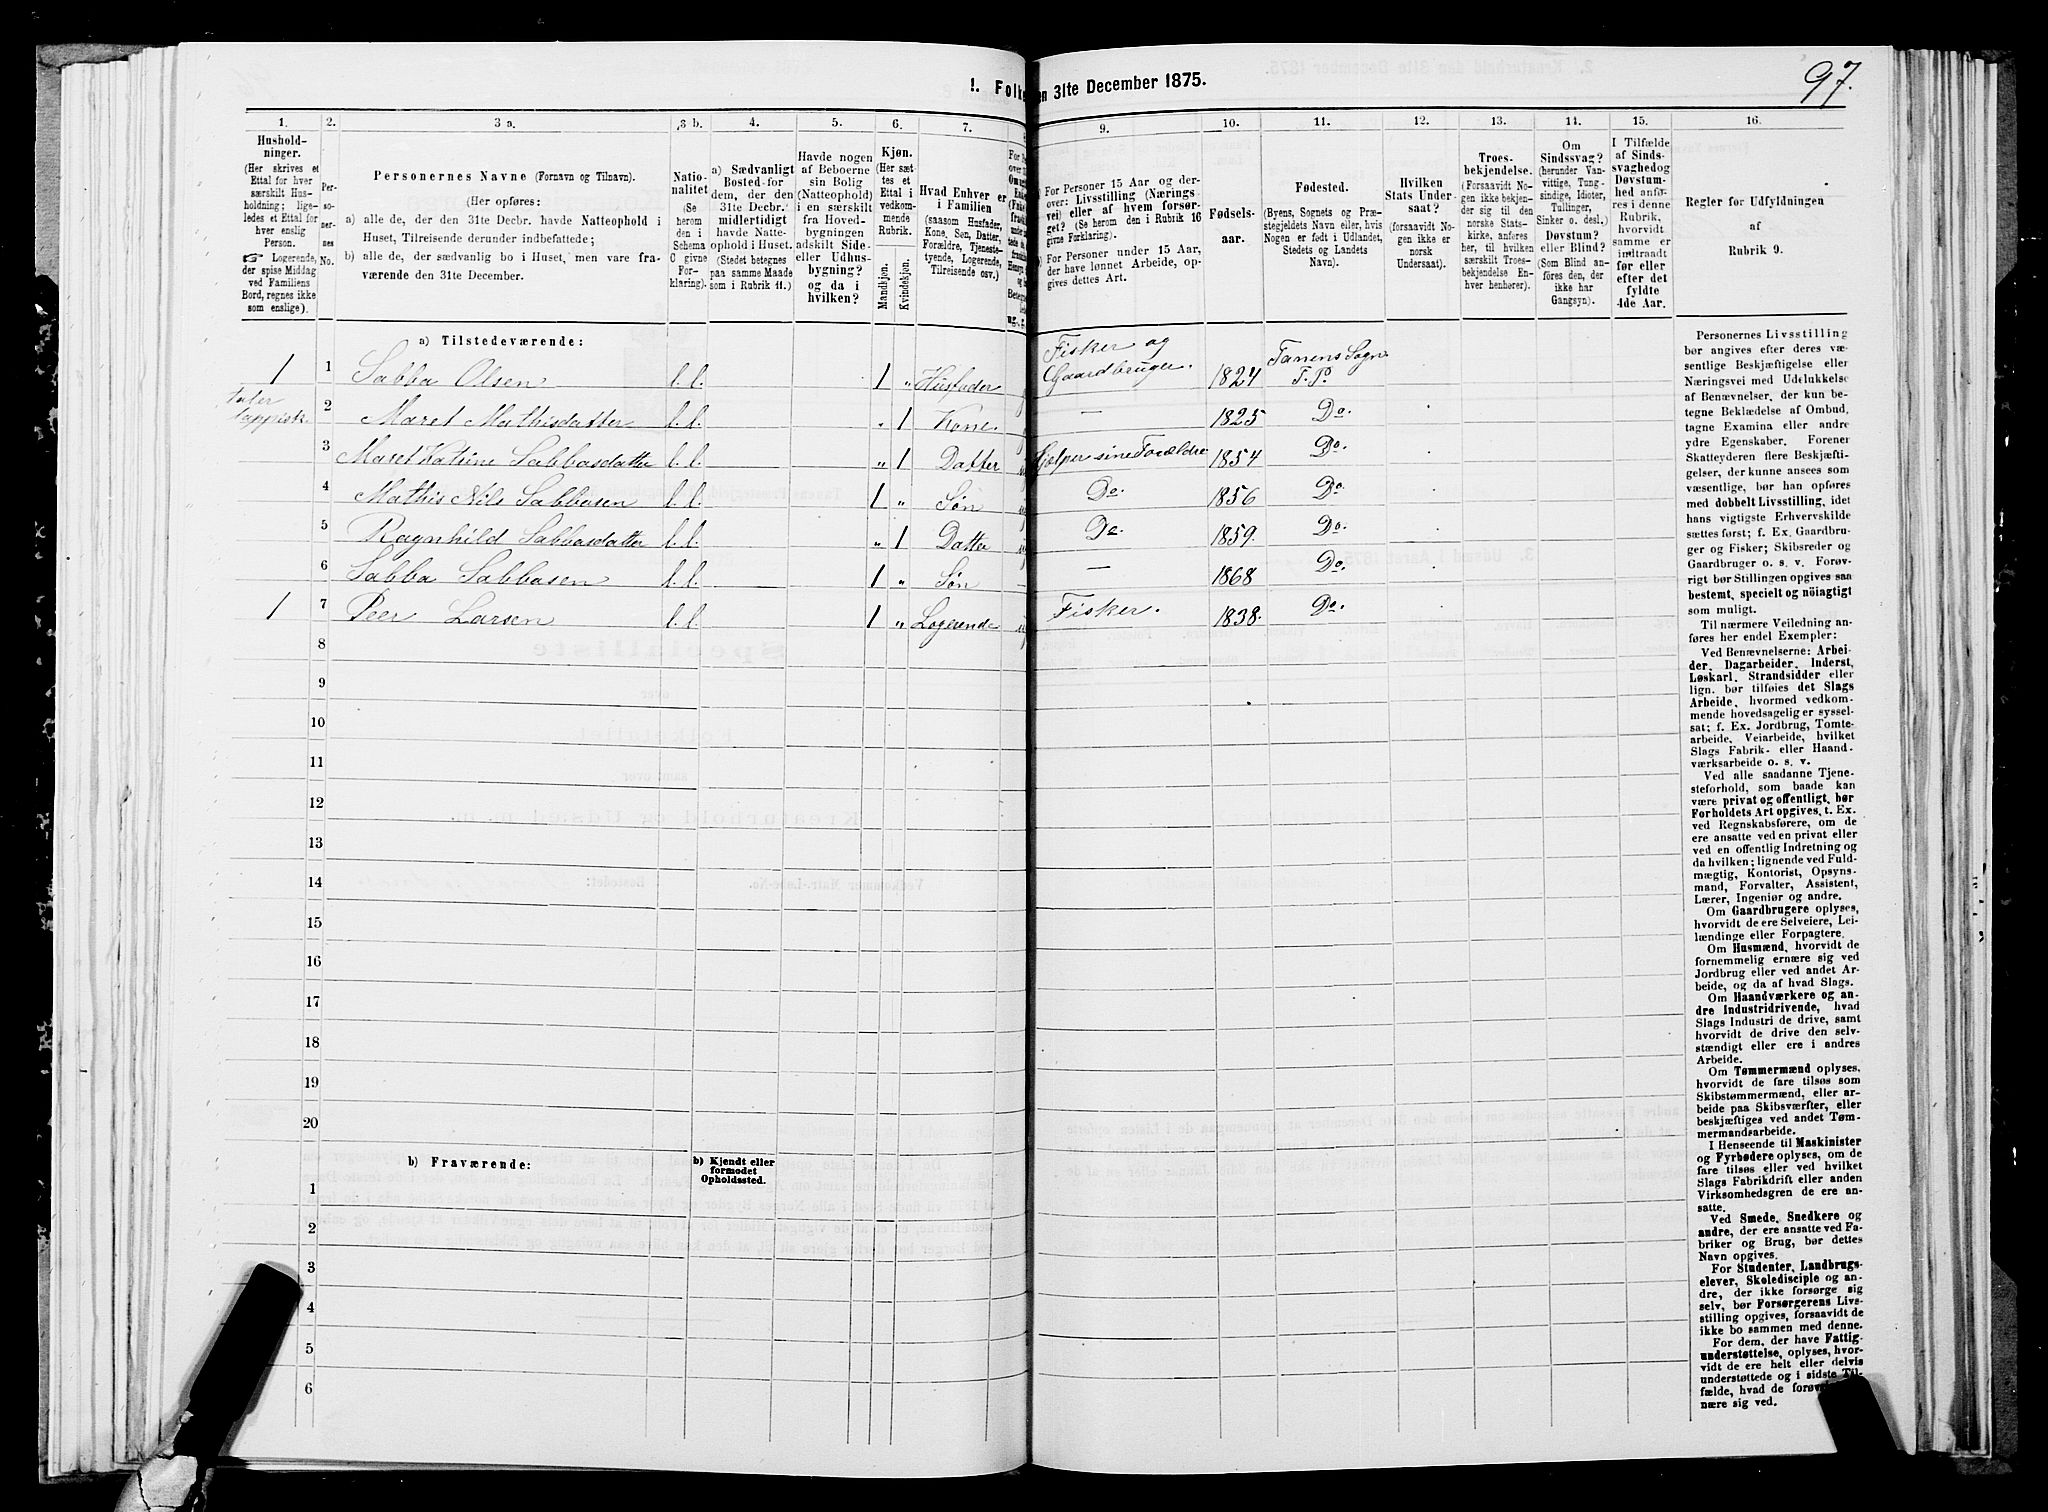 1. Folke
en 31te December 1875.
97.
1.
2.
3 a.
3 b.
4.
5.
6.
7.
9.
10.
11.
12.
13.
14.
15.
16.
Hushold-
ninger.
(Her skrives et
Ettal for hver
særskilt Hus-
holdning; lige-
ledes et Ettal for
hver enslig
Person.
☞ Logerende,
der spise Middag
ved Familiens
Bord, regnes ikke
som enslige).
Per-
so-
ner-
nes
No.
Personernes Navne (Fornavn og Tilnavn).
(Her opføres:
a) alle de, der den 31te Decbr. havde Natteophold i
Huset, Tilreisende derunder indbefattede;
b) alle de, der sædvanlig bo i Huset, men vare fra-
værende den 31te December.
Natio-
nalitet
(Se
herom
den i
Schema
C givne
For-
klaring).
a) Sædvanligt
Bosted for
dem, der den
31te Decbr.
midlertidigt
havde Natte-
ophold i Huset.
(Stedet betegnes
paa samme Maade
som i Rubrik 11.)
Havde nogen
af Beboerne
sin Bolig
(Natteophold)
i en særskilt
fra Hoved-
bygningen
adskilt Side-
eller Udhus-
bygning?
og da i
hvilken?
Kjøn.
(Her sæt-
tes et
Ettal i
vedkom-
mende
Rubrik.
Mandkjøn.
Kvindekjøn.
Hvad Enhver er
i Familien
(saasom Husfader,
Kone, Søn, Datter,
Forældre, Tjeneste-
tyende, Logerende,
Tilreisende osv.)
For Personer 15 Aar og der-
over: Livsstilling (Nærings-
vei) eller af hvem forsør-
get. (Se herom den i Rubrik 16
givne Forklaring.)
For Personer under 15 Aar,
der have lønnet Arbeide, op-
gives dettes Art.
Fødsels-
aar.
Fødested.
(Byens, Sognets og Præ-
stegjeldets Navn eller, hvis
Nogen er født i Udlandet,
Stedets og Landets
Navn).
Hvilken
Stats Under-
saat?
(forsaavidt No-
gen ikke er
norsk
Undersaat).
Troes-
bekjendelse.
(Forsaavidt No-
gen ikke bekjen-
der sig til den
norske Stats-
kirke, anføres
her, til hvilken
særskilt Troes-
bekjendelse En-
hver henhører).
Om
Sindssvag?
(herunder Van-
vittige, Tung-
sindige, Idioter,
Tullinger,
Sinker o. desl.)
Døvstum?
eller Blind?
(Som Blind an-
føres den, der
ikke har
Gangsyn).
I Tilfælde
af Sinds-
svaghed og
Døvstum-
hed anfø-
res i denne
Rubrik,
hvorvidt
samme er
indtraadt
før eller
efter det
fyldte
4de Aar.
Regler for Udfyldningen
af
Rubrik 9.
a) Tilstedeværende:
1 1 Sabba Olsen l. l. 1 „ Husfader Fisker og Gaardbruger. 1824 Tanens Sogn T. P.
taler
lappisk
2 Maret Mathisdatter l. l. „ 1 Kone. — 1825 Do.
3 Maret Katrine Sabbasdatter l. l. „ 1 Datter Hjelper sine Forældre 1854 Do.
4 Mathis Nils Sabbasen l. l. 1 „ Søn Do. 1856 Do.
5 Ragnhild Sabbasdatter l. l. „ 1 Datter Do 1859. Do.
6 Sabba Sabbasen l. l. 1 „ Søn — 1868 Do.
1 7 Peer Larsen l. l. 1 „ Logerende Fisker. 1838. Do.
8
9
10
11
12
13
14
15
16
17
18
19
20
b) Fraværende:
b) Kjendt eller
formodet
Opholdssted.
1
2
3
4
5
6
Personernes Livsstilling
bør angives efter deres væ-
sentlige Beskjæftigelse eller
Næringsvei med Udelukkelse
af Benævnelser, der kun be-
tegne Beklædelse af Ombud,
tagne Examina eller andre
ydre Egenskaber. Forener
Skatteyderen flere Beskjæfti-
gelser, der kunne ansees som
væsentlige, bør han opføres
med dobbelt Livsstilling, idet
hans vigtigste Erhvervskilde
sættes først; f. Ex. Gaardbru-
ger og Fisker; Skibsreder og
Gaardbruger o. s. v. Forøv-
rigt bør Stillingen opgives saa
bestemt, specielt og nöiagtigt
som muligt.
Til nærmere Veiledning an-
føres her endel Exempler:
Ved Benævnelserne: Arbei-
der, Dagarbeider, Inderst,
Løskarl, Strandsidder eller
lign. bør tilføies det Slags
Arbeide, hvormed vedkom-
mende hovedsagelig er syssel-
sat; f. Ex. Jordbrug, Tomte-
arbeide, Veiarbeide, hvilket
Slags Fabrik- eller Haand-
værksarbeide o. s. v.
Ved alle saadanne Tjene-
steforhold, som baade kan
være privat og offentligt, bør
Forholdets Art opgives, t. Ex.
ved Regnskabsførere, om de
ere ansatte ved en privat eller
ved en offentlig Indretning og
da hvilken; lignende ved Fuld-
mægtig, Kontorist, Opsyns-
mand, Forvalter, Assistent,
Lærer, Ingeniør og andre.
Om Gaardbrugere oplyses,
hvorvidt de ere Selveiere, Lei-
lændinge eller Forpagtere.
Om Husmænd, hvorvidt de
fornemmelig ernære sig ved
Jordbrug eller ved andet Ar-
beide, og da af hvad Slags.
Om Haandværkere og an-
dre Industridrivende, hvad
Slags Industri de drive, samt
hvorvidt de drive den selv-
stændigt eller ere i andres
Arbeide.
Om Tømmermænd oplyses,
hvorvidt de fare tilsøs som
Skibstømmermænd, eller ar-
beide paa Skibsværfter, eller
beskjæftiges ved andet Tøm-
mermandsarbeide.
I Henseende til Maskinister
og Fyrbødere oplyses, om de
fare tilsøs eller ved hvilket
Slags Fabrikdrift eller anden
Virksomhedsgren de ere an-
satte.
Ved Smede, Snedkere og
andre, der ere ansatte ved Fa-
briker og Brug, bør dettes
Navn opgives.
For Studenter, Landbrugs-
elever, Skoledisciple og an-
dre, der ikke forsørge sig
selv, bør Forsørgerens Livs-
stilling opgives, forsaavidt de
ikke bo sammen med denne.
For dem, der have Fattig-
understøttelse, oplyses, hvor-
vidt de ere helt eller delvis
understøttede og i sidste Til-
fælde, hvad de forøv
nære sig ved.